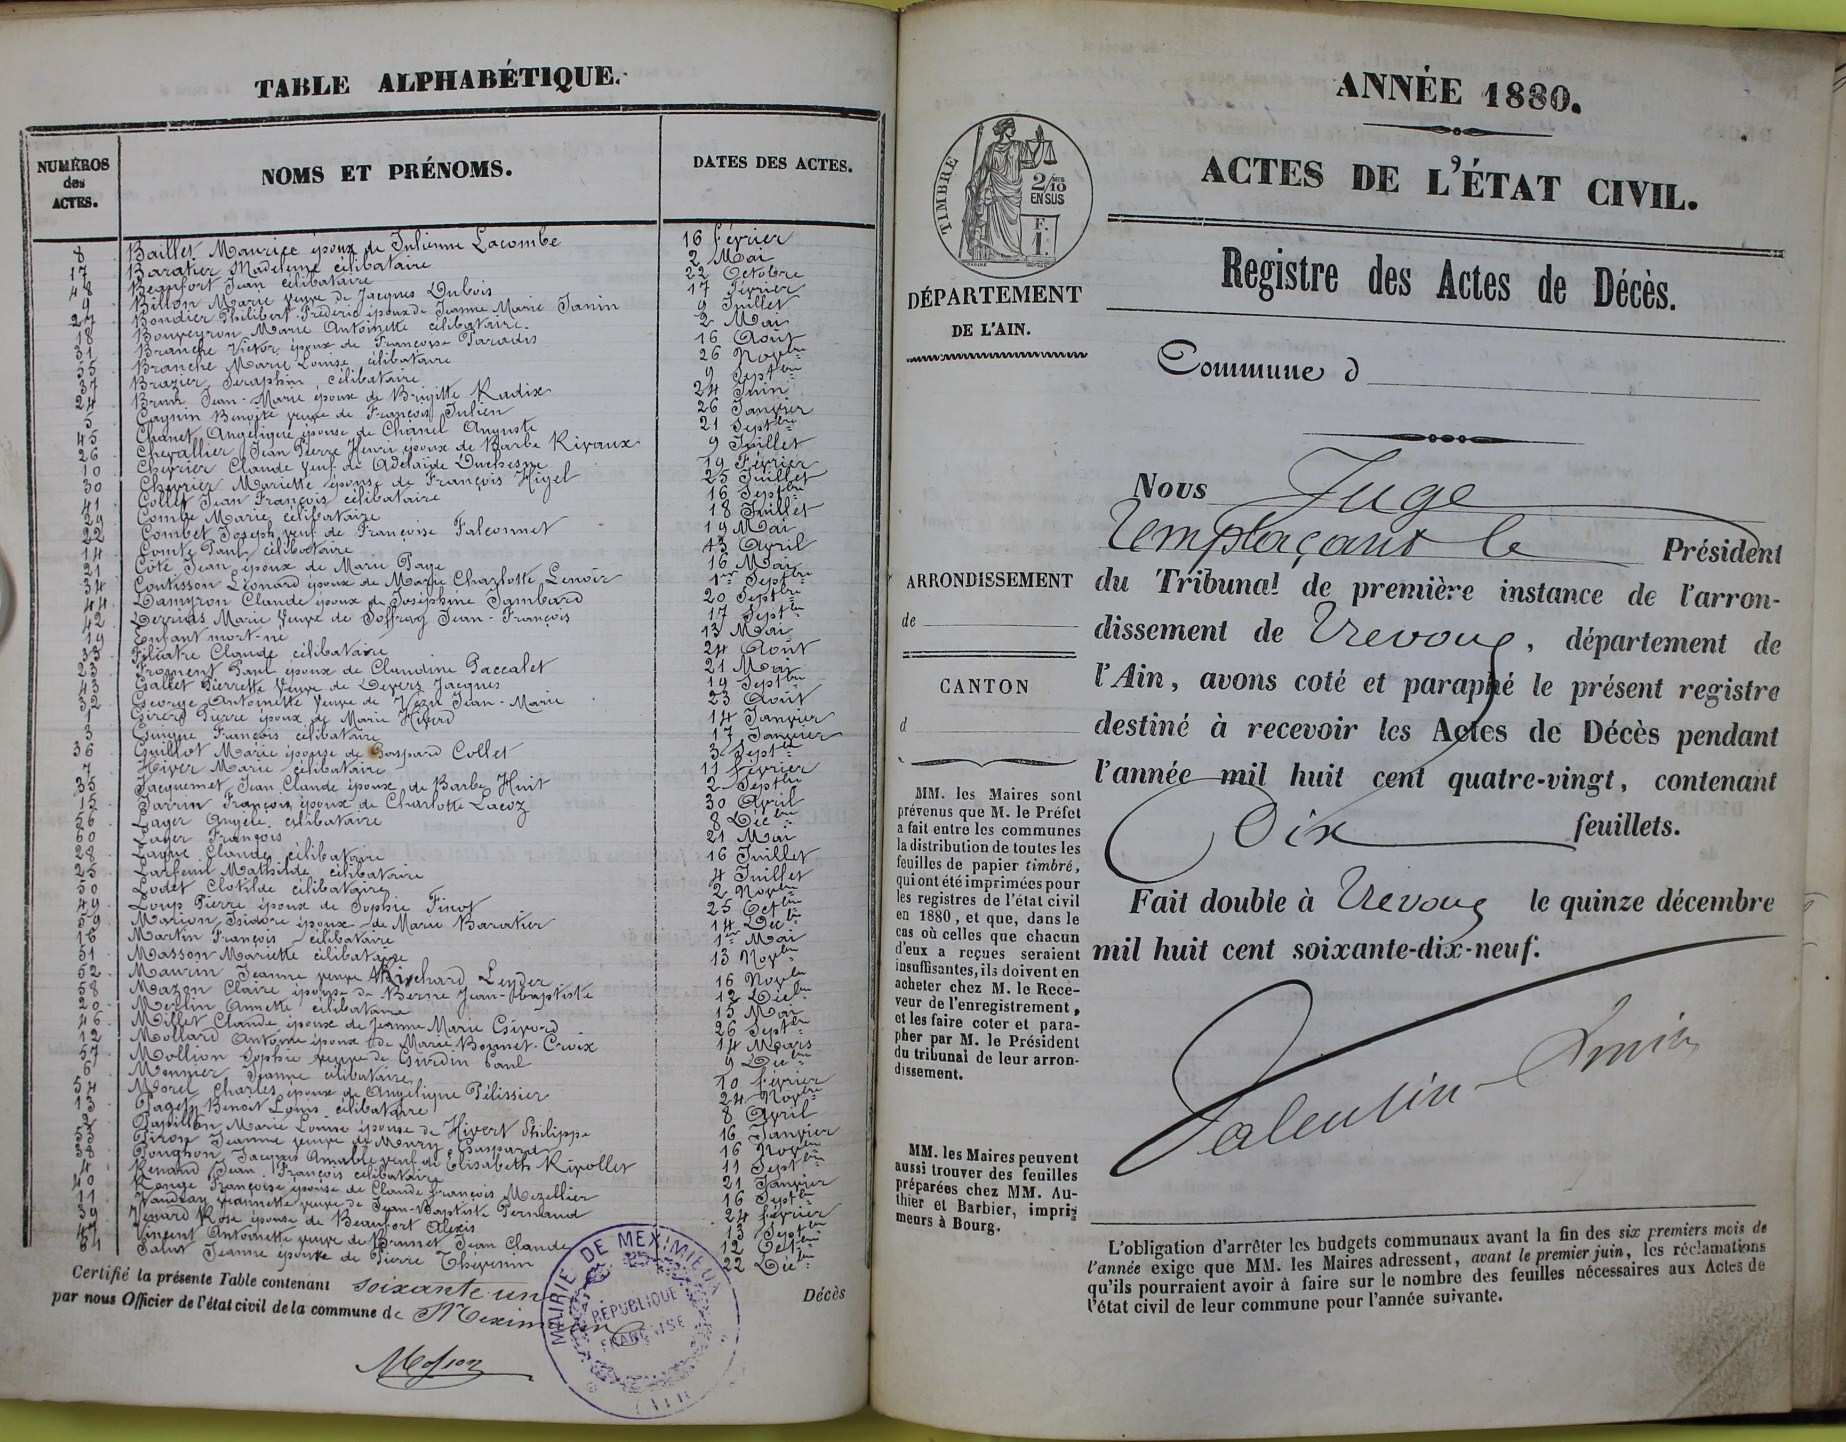 TABLE ALPHABÉTIQUE.
NUMÉROS des ACTES.
NOMS ET PRÉNOMS.
DATES DES ACTES.
8 Baillet Maurice époux de Julienne Lacombe 16 février
17 Baratier Madeleine célibataire 2 Mai
48 Beaufort Jean célibataire 22 Octobre
9 Billon Marie veuve de Jacques Dubois 17 Février
27 Bondier Philibert Frédéric époux de Jeanne Marie Janin 9 Juillet
18 Bouveyron Marie Antoinette célibataire. 2 Mai
31 Branche Victor époux de Françoise Paradis 16 Août
55 Branche Marie Louise célibataire 26 Novbre
37 Brazier Séraphin célibataire 9 Septbre
24 Brun Jean-Marie époux de Brigitte Radix 24 Juin
5 Cagnin Benoîte veuve de François Julien 26 Janvier
45 Chanel Angélique épouse de Chanel Auguste 21 Septbre
26 Chevallier Jean Pierre Henri époux de Barbe Rivaux 9 Juillet
10 Chevrier Claude veuf de Adélaïde Duchesne 19 Février
30 Chevrier Mariette épouse de François Higel 25 Juillet
41 Collet Jean François célibataire 16 Septbre
29 Combe Marie célibataire 18 Juillet
22 Combet Joseph veuf de Françoise Falconnet 19 Mai
14 Comte Paul célibataire 13 Avril
21 Côte Jean époux de Marie Page 16 Mai
34 Coutisson Léonard époux de Marie Charlotte Lenoir 1er Septbre
44 Damyron Claude époux de Joséphine Jambard 20 Septbre
42 Marie veuve de Joffray Jean-François 17 Septbre
19 Enfant mort-né 13 Mai
33 Filiatre Claude célibataire 24 Août
23 Froment Paul époux de Claudine Paccalet 21 Mai
43 Gallet Pierrette veuve de Devers Jacques 19 Septbre
32 George Antoinette veuve de Jean-Marie 23 Août
1 Girerd Pierre époux de Marie Hiverd 14 Janvier
3 François célibataire 17 Janvier
36 Guillot Marie épouse de Gaspard Collet 3 Septbre
7 Hiver Marie célibataire 11 février
35 Jacquemet Jean Claude époux de Barbe Huit 2 Septbre
15 Jarrin François époux de Charlotte Lacoz 30 Avril
56 Lager Angèle célibataire 8 Décbre
60 Lager François 21 Mai
28 Lague Claude célibataire 16 Juillet
25 Larfeuil Mathilde célibataire 4 Juillet
50 Lodet Clotilde célibataire 2 Novbre
49 Loup Pierre époux de Sophie Finot 25 Octbre
59 Marion Isidore époux de Marie Baratier 14 Décbre
16 Martin François célibataire 1er Mai
51 Masson Mariette célibataire 13 Novbre
52 Maurin Jeanne veuve Richard Leyder 16 Novbre
58 Mazon Claire épouse de Berne Jean-Baptiste 12 Décbre
20 Merlin Annette célibataire 15 Mai
46 Millet Claude époux de Jeanne Marie 26 Septbre
12 Mollard Antoine époux de Marie Bonnet-Croix 14 Mars
57 Mollion Sophie veuve de Girodin Paul 9 Décbre
6 Monnier Jeanne célibataire 10 février
54 Morel Charles époux de Angélique Pélissier 24 Novbre
13 Paget Benoît Louis célibataire 8 Avril
2 Papillon Marie Louise épouse de Hivert Philippe 16 Janvier
53 Piron Jeanne veuve de Gaspard 16 Novbre
38 Poughon Jacques Amable veuf de Elisabeth Rivollet 11 Septbre
4 Renaud Jean François célibataire 21 Janvier
40 Ronge Françoise épouse de Claude François Mezellier 16 Septbre
11 Vaudray Jeannette veuve de Jean-Baptiste Pernaud 24 février
39 Venard Rose épouse de Beaufort Alexis 13 Septbre
47 Vincent Antoinette veuve de Brunet Jean Claude 12 Octbre
61 Jeanne épouse de Pierre Thevenin 22 Décbre
Certifié la présente Table contenant soixante un Décès
par nous Officier de l'état civil de la commune de Meximieux
MAIRIE DE MEXIMIEUX
RÉPUBLIQUE
FRANÇAISE
(AIN)
ANNÉE 1880.
ACTES DE L'ÉTAT CIVIL.
TIMBRE
2/10 EN SUS
F. 1.
DÉPARTEMENT
DE L'AIN.
Registre des Actes de Décès.
Commune d
Nous Juge
remplaçant le Président
du Tribunal de première instance de l'arron-
dissement de Trevoux, département de
l'Ain, avons coté et paraphé le présent registre
destiné à recevoir les Actes de Décès pendant
l'année mil huit cent quatre-vingt, contenant
Dix feuillets.
Fait double à Trevoux le quinze décembre
mil huit cent soixante-dix-neuf.
Valentin-Smith
ARRONDISSEMENT
de
CANTON
d
MM. les Maires sont
prévenus que M. le Préfet
a fait entre les communes
la distribution de toutes les
feuilles de papier timbré,
qui ont été imprimées pour
les registres de l'état civil
en 1880, et que, dans le
cas où celles que chacun
d'eux a reçues seraient
insuffisantes, ils doivent en
acheter chez M. le Rece-
veur de l'enregistrement,
et les faire coter et para-
pher par M. le Président
du tribunal de leur arron-
dissement.
MM. les Maires peuvent
aussi trouver des feuilles
préparées chez MM. Au-
thier et Barbier, impri-
meurs à Bourg.
L'obligation d'arrêter les budgets communaux avant la fin des six premiers mois de
l'année exige que MM. les Maires adressent, avant le premier juin, les réclamations
qu'ils pourraient avoir à faire sur le nombre des feuilles nécessaires aux Actes de
l'état civil de leur commune pour l'année suivante.